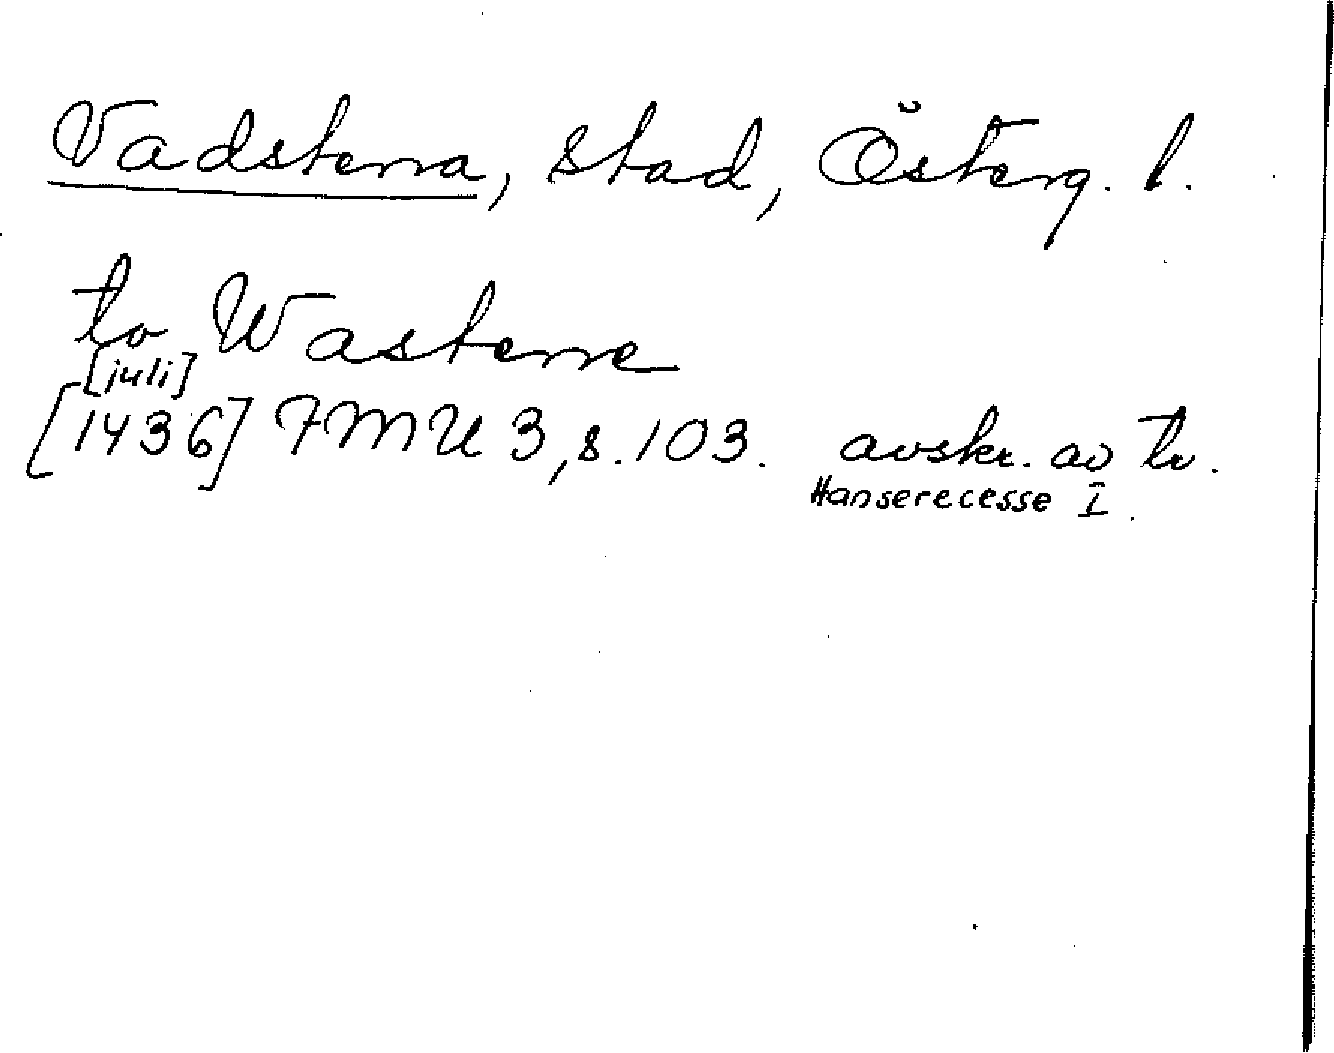 Vadstena, stad, Österg. l.
to Wastene
[juli]
[1436] FMU 3, s. 103. avskr. av tr.
Hanserecesse I.